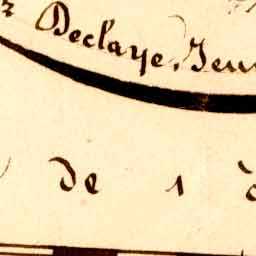 Declaye, Jeu
de 1 à